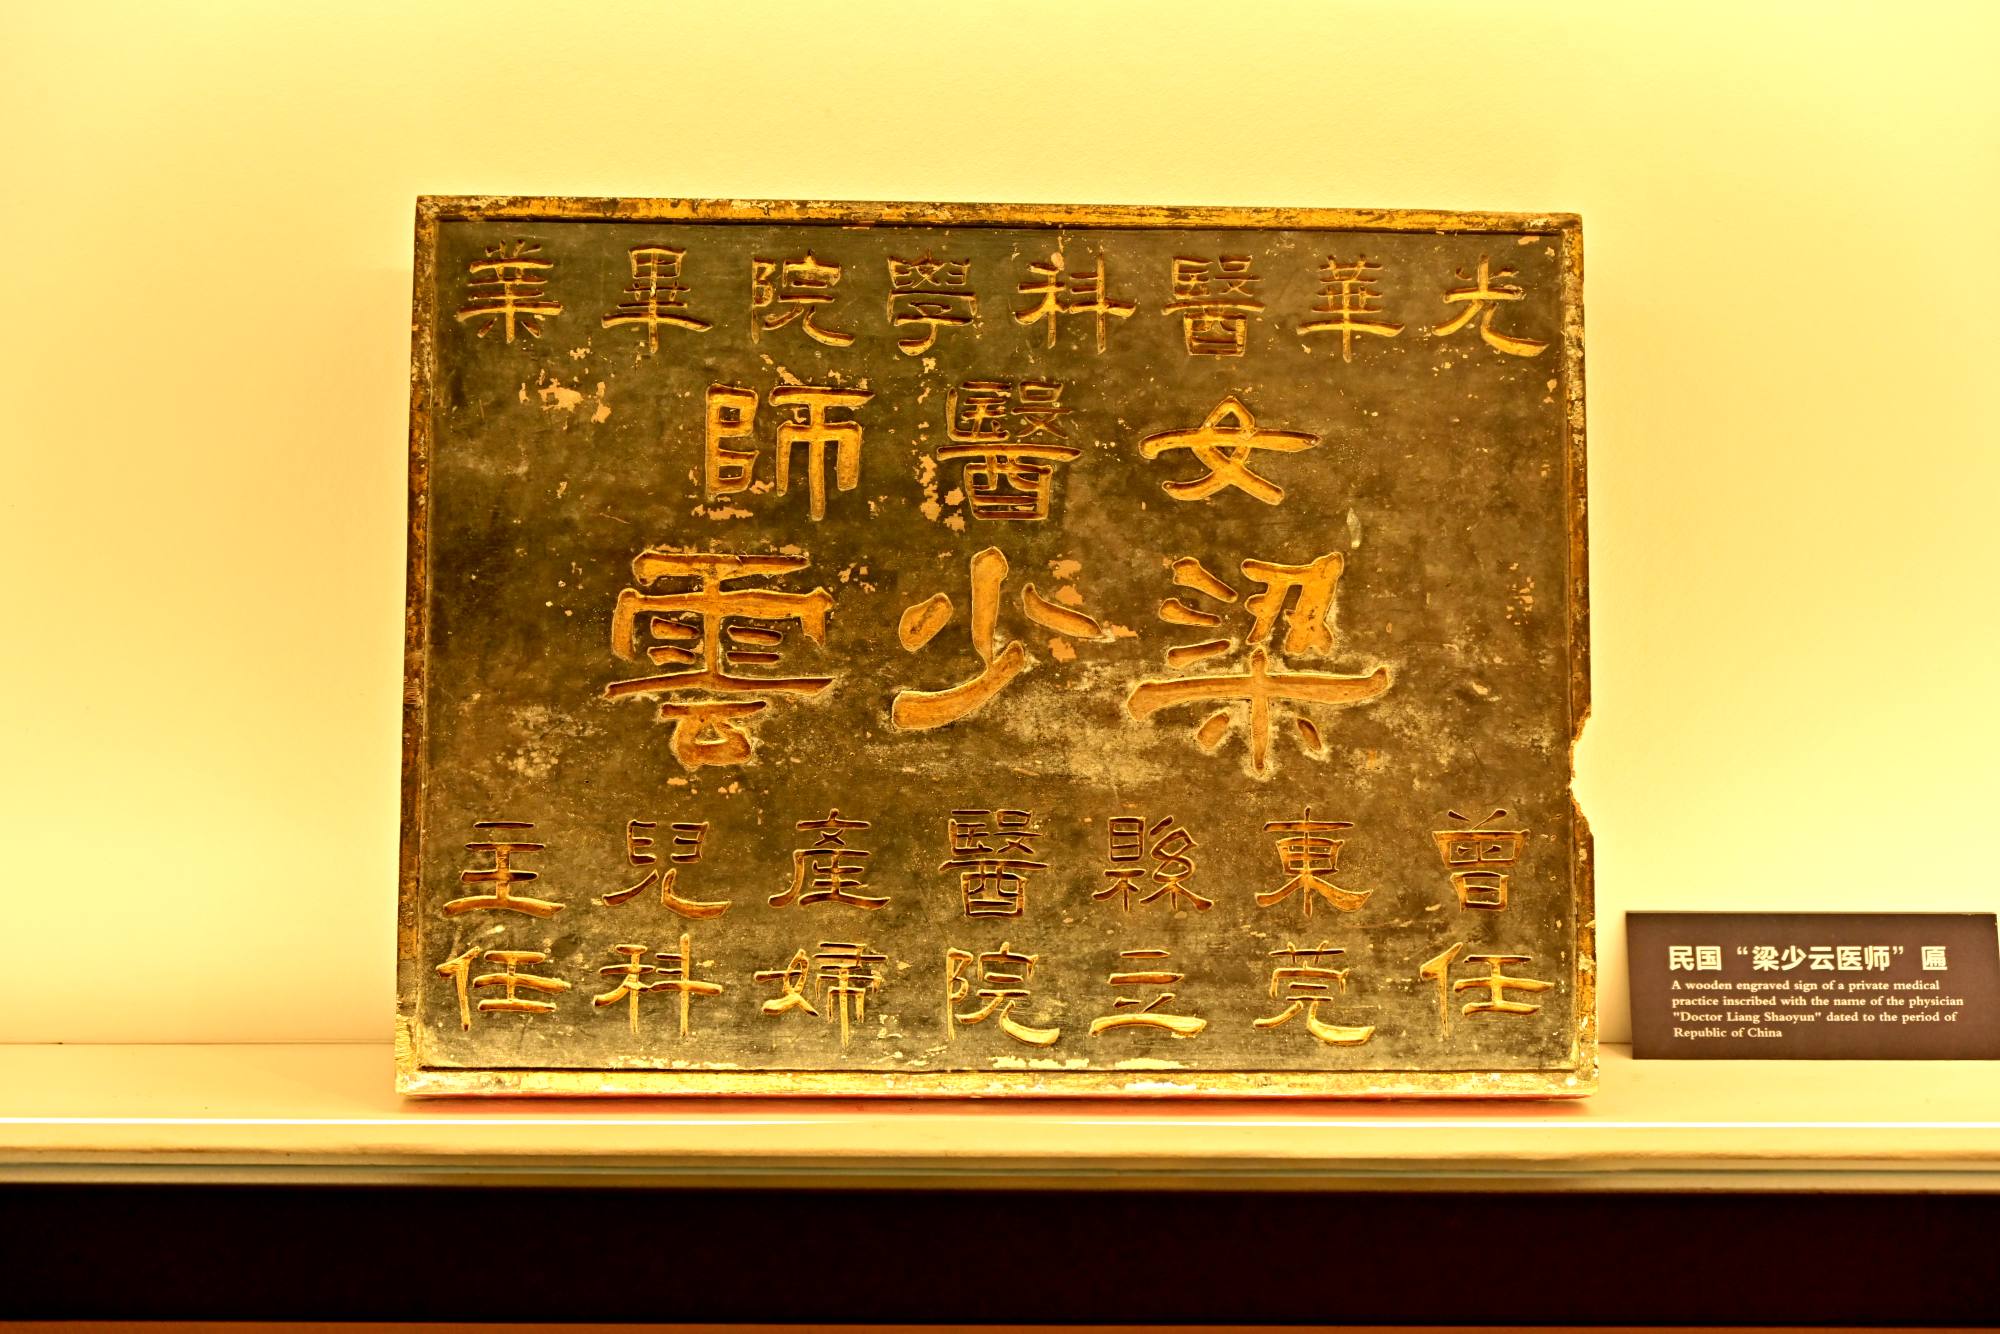 光華醫科學院畢業
女醫師
梁少雲
曾任東莞縣立醫院產婦兒科主任
民国“梁少云医师”匾
A wooden engraved sign of a private medical
practice inscribed with the name of the physician
"Doctor Liang Shaoyun" dated to the period of
Republic of China